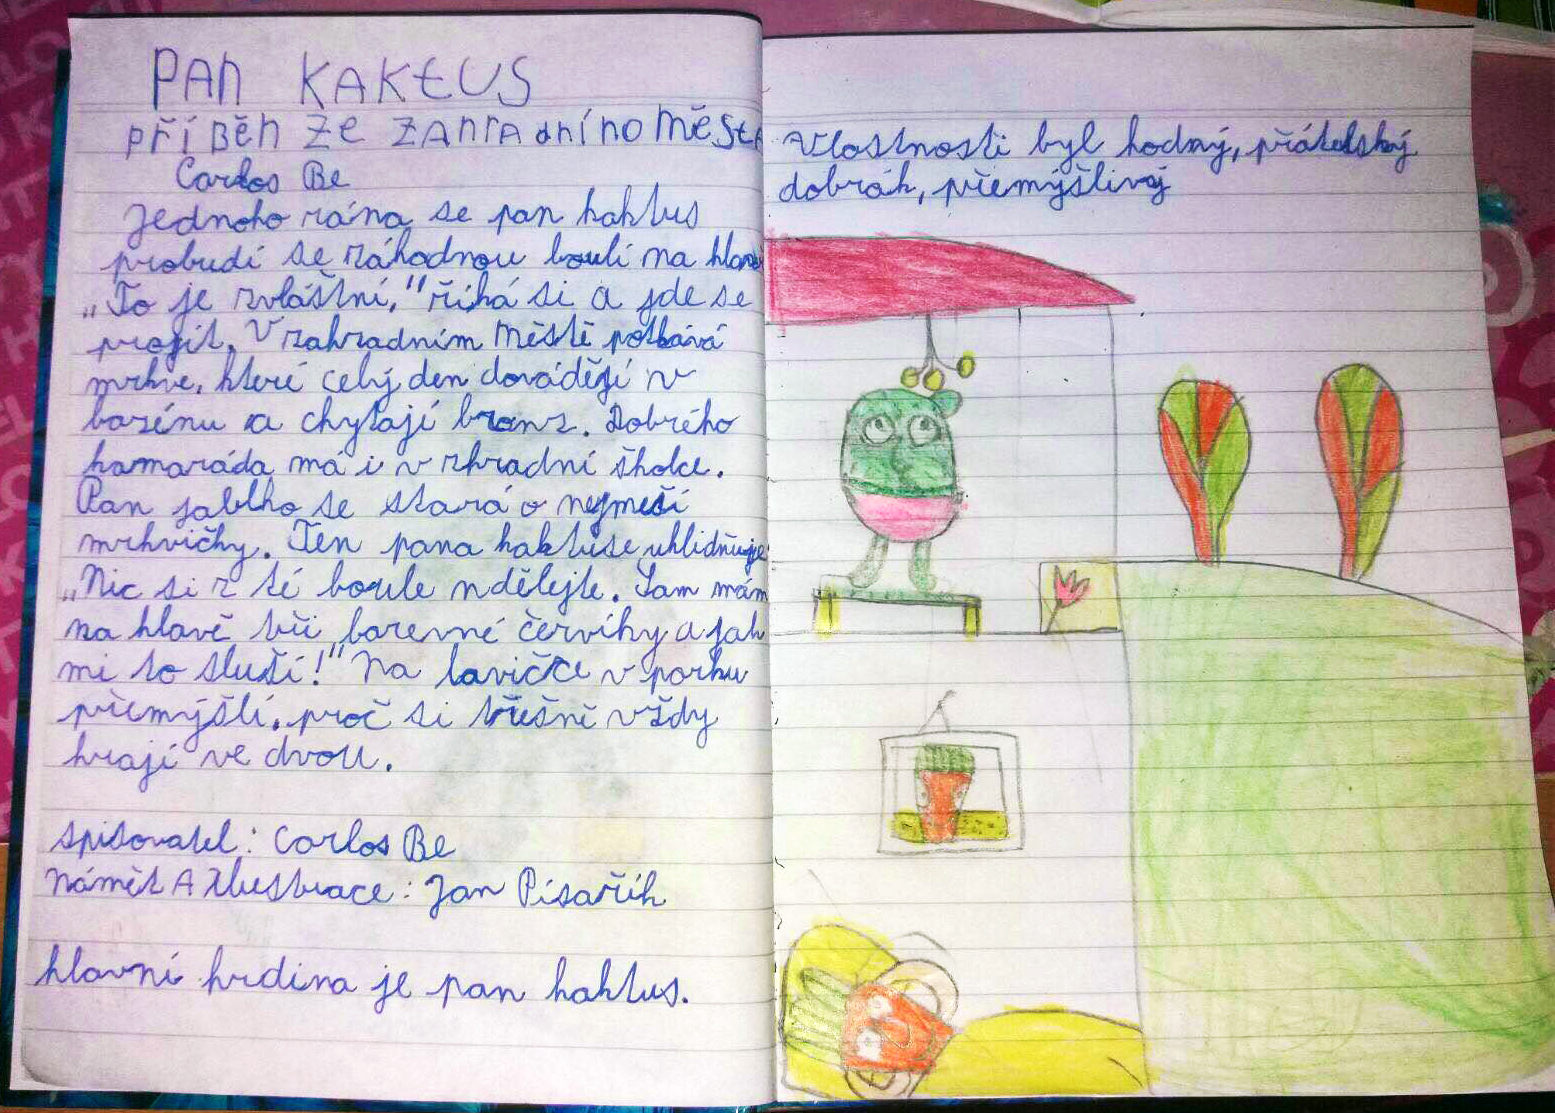 PAN KAKTUS
PŘÍBĚH ZE ZAHRADNÍHO MĚSTA
Carlos Be
Jednoho rána se pan kaktus
probudí se záhadnou boulí na hlavě
„To je zvláštní,“ říká si a jde se
projít. V zahradním Městě potkává
mrkve, které celý den dovádějí v
bazénu a chytají bronz. Dobrého
kamaráda má i v zhradní školce.
Pan jablko se stará o nejmeší
mrkvičky. Ten pana kaktuse uklidňuje
„Nic si z té boule ndělejte. Sam mám
na hlavě tři barevné červíky a jak
mi to sluší!“ Na lavičce v parku
přemýšlí, proč si třešně vždy
hrají ve dvou.
spisovatel: Carlos Be
Námět A Ilustrace: Jan Písařík
hlavní hrdina je pan kaktus.
Vlastnosti byl hodný, přátelský
dobrák, přemýšlivý